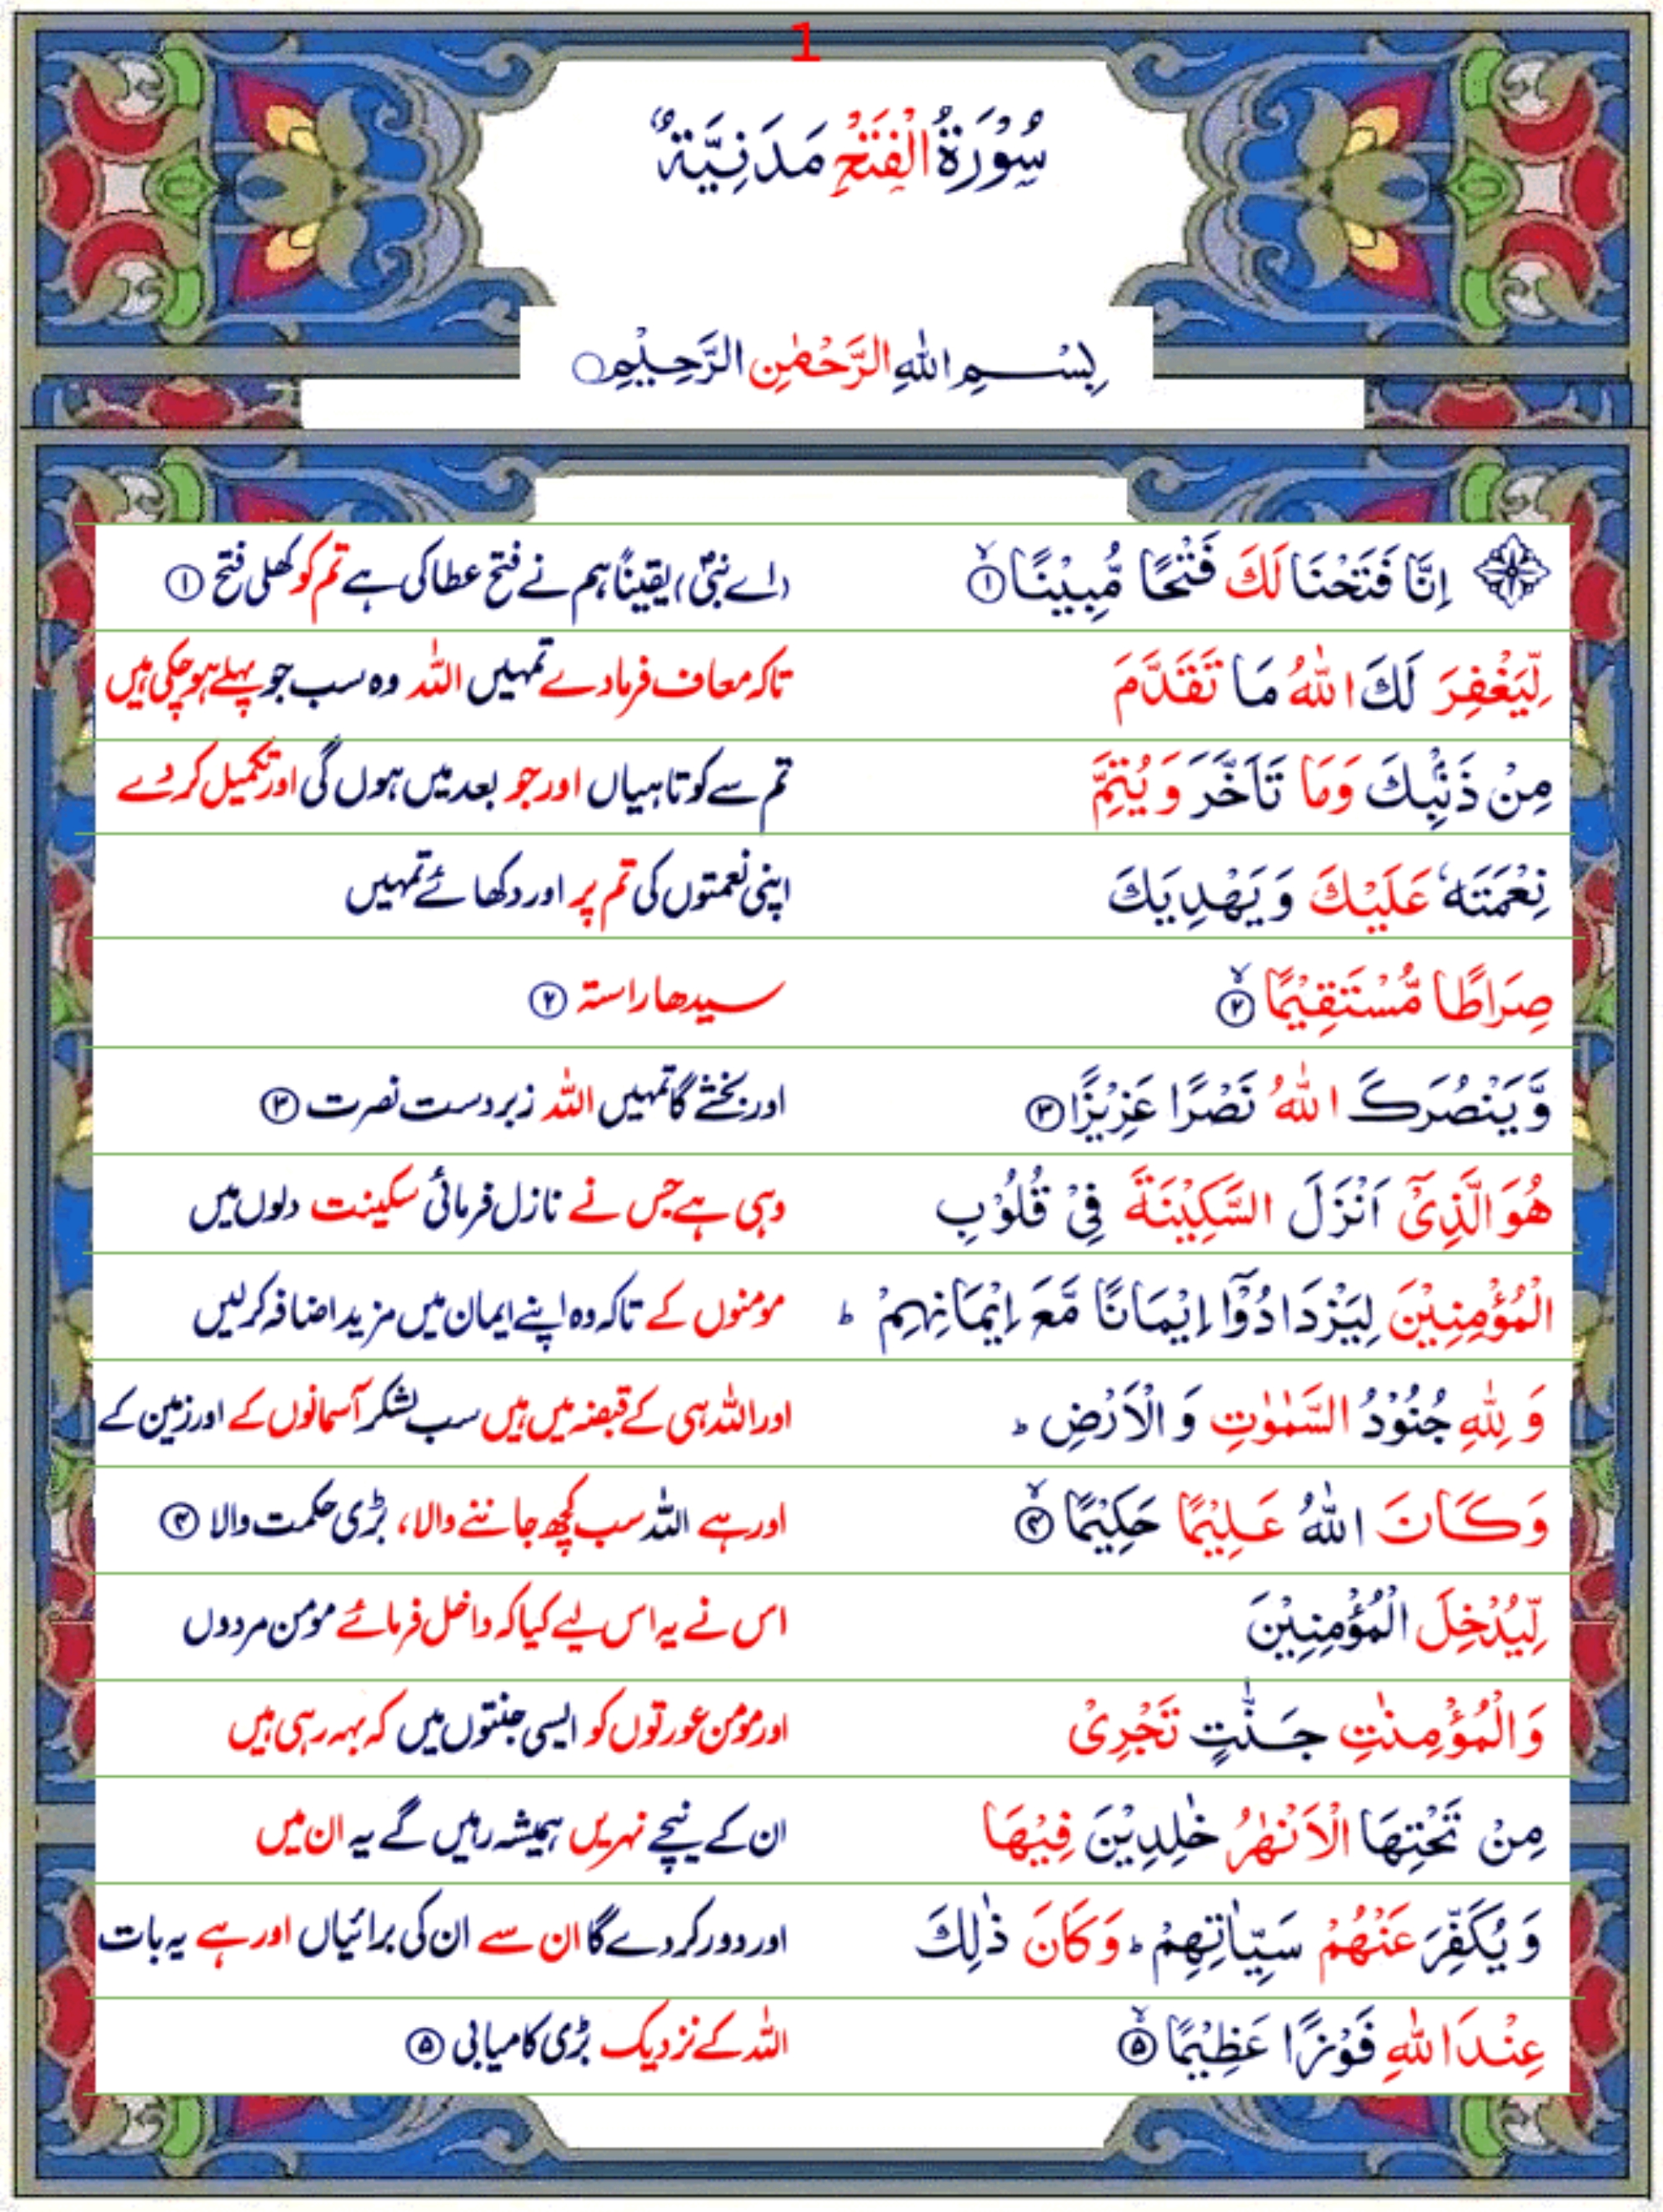 1
سُوْرَةُ الْفَتْحِ مَدَنِيَّةٌ
بِسْمِ اللّٰهِ الرَّحْمٰنِ الرَّحِيْمِ
اِنَّا فَتَحْنَا لَكَ فَتْحًا مُّبِيْنًا ۙ﴿۱﴾ (اے نبیؐ) یقیناً ہم نے فتح عطا کی ہے تم کو کھلی فتح ﴿۱﴾
لِّيَغْفِرَ لَكَ اللّٰهُ مَا تَقَدَّمَ تاکہ معاف فرمادے تمہیں اللہ وہ سب جو پہلے ہوچکی ہیں
مِنْ ذَنْۢبِكَ وَمَا تَاَخَّرَ وَ يُتِمَّ تم سے کوتاہیاں اور جو بعد میں ہوں گی اور تکمیل کردے
نِعْمَتَهٗ عَلَيْكَ وَ يَهْدِيَكَ اپنی نعمتوں کی تم پر اور دکھائے تمہیں
صِرَاطًا مُّسْتَقِيْمًا ۙ﴿۲﴾ سیدھا راستہ ﴿۲﴾
وَّ يَنْصُرَكَ اللّٰهُ نَصْرًا عَزِيْزًا ﴿۳﴾ اور بخشے گا تمہیں اللہ زبردست نصرت ﴿۳﴾
هُوَ الَّذِيْۤ اَنْزَلَ السَّكِيْنَةَ فِيْ قُلُوْبِ وہی ہے جس نے نازل فرمائی سکینت دلوں میں
الْمُؤْمِنِيْنَ لِيَزْدَادُوْۤا اِيْمَانًا مَّعَ اِيْمَانِهِمْ ؕ مومنوں کے تاکہ وہ اپنے ایمان میں مزید اضافہ کرلیں
وَ لِلّٰهِ جُنُوْدُ السَّمٰوٰتِ وَ الْاَرْضِ ؕ اور اللہ ہی کے قبضہ میں ہیں سب لشکر آسمانوں کے اور زمین کے
وَ كَانَ اللّٰهُ عَلِيْمًا حَكِيْمًا ۙ﴿۴﴾ اور ہے اللہ سب کچھ جاننے والا، بڑی حکمت والا ﴿۴﴾
لِّيُدْخِلَ الْمُؤْمِنِيْنَ اس نے یہ اس لیے کیا کہ داخل فرمائے مومن مردوں
وَ الْمُؤْمِنٰتِ جَنّٰتٍ تَجْرِيْ اور مومن عورتوں کو ایسی جنتوں میں کہ بہہ رہی ہیں
مِنْ تَحْتِهَا الْاَنْهٰرُ خٰلِدِيْنَ فِيْهَا ان کے نیچے نہریں ہمیشہ رہیں گے یہ ان میں
وَ يُكَفِّرَ عَنْهُمْ سَيِّاٰتِهِمْ ؕ وَ كَانَ ذٰلِكَ اور دور کردے گا ان سے ان کی برائیاں اور ہے یہ بات
عِنْدَ اللّٰهِ فَوْزًا عَظِيْمًا ۙ﴿۵﴾ اللہ کے نزدیک بڑی کامیابی ﴿۵﴾